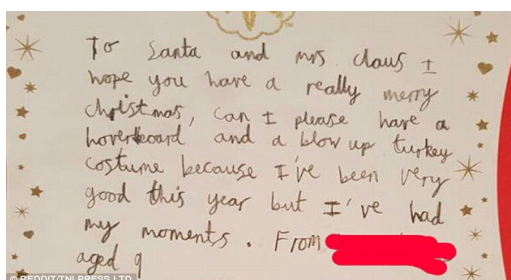 To Santa and mrs claus I
hope you have a really merry
christmas, can I please have a
hoverboard and a blow up turkey
costume because I've been very
good this year but I've had
my moments. From
aged 9
© REDDIT/TNI PRESS LTD